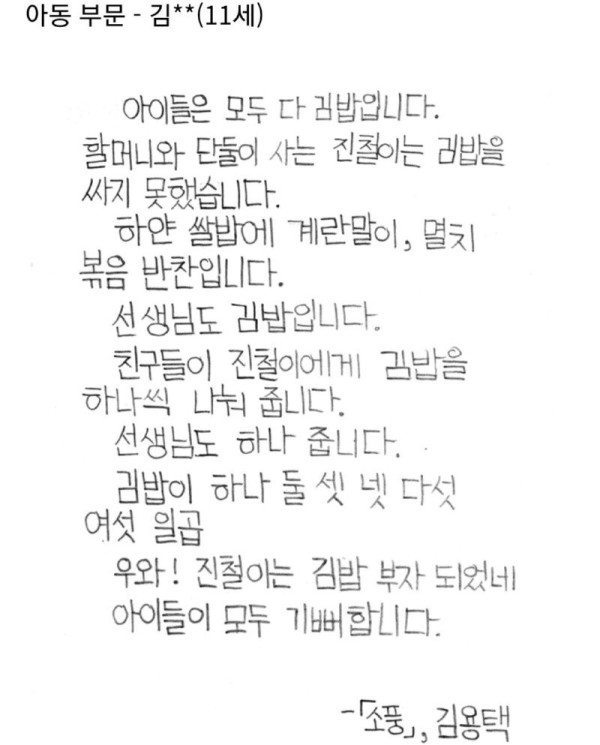 아동 부문 - 김**(11세)
아이들은 모두 다 김밥입니다.
할머니와 단둘이 사는 진철이는 김밥을
싸지 못했습니다.
하얀 쌀밥에 계란말이, 멸치
볶음 반찬입니다.
선생님도 김밥입니다.
친구들이 진철이에게 김밥을
하나씩 나눠 줍니다.
선생님도 하나 줍니다.
김밥이 하나 둘 셋 넷 다섯
여섯 일곱
우와! 진철이는 김밥 부자 되었네
아이들이 모두 기뻐합니다.
-「소풍」, 김용택